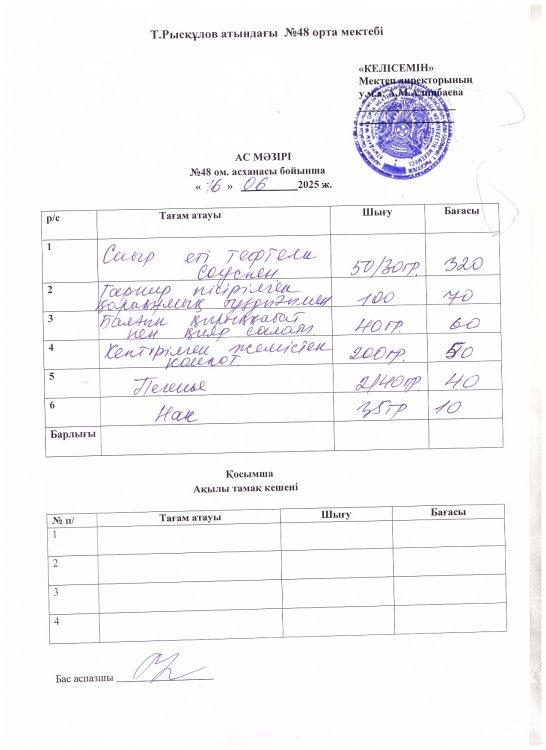 Т.Рысқұлов атындағы №48 орта мектебі
«КЕЛІСЕМІН»
Мектеп директорының
у.м.а. А.М.Алшибаева
АС МӘЗІРІ
№48 ом. асханасы бойынша
« 16 » 06 2025 ж.
р/с Тағам атауы Шығу Бағасы
1 Сиыр еті тефтели соуспен 50/30гр. 320
2 Гарнир пісірілген қарақұмық бұқтырылмен 100 70
3 Балғын қырыққабат пен қияр салат 40гр. 60
4 Кептірілген жемістен компот. 200гр. 50
5 Печенье 2/40гр 40
6 Нан 35гр 10
Барлығы
Қосымша
Ақылы тамақ кешені
№ п/ Тағам атауы Шығу Бағасы
1
2
3
4
Бас аспазшы